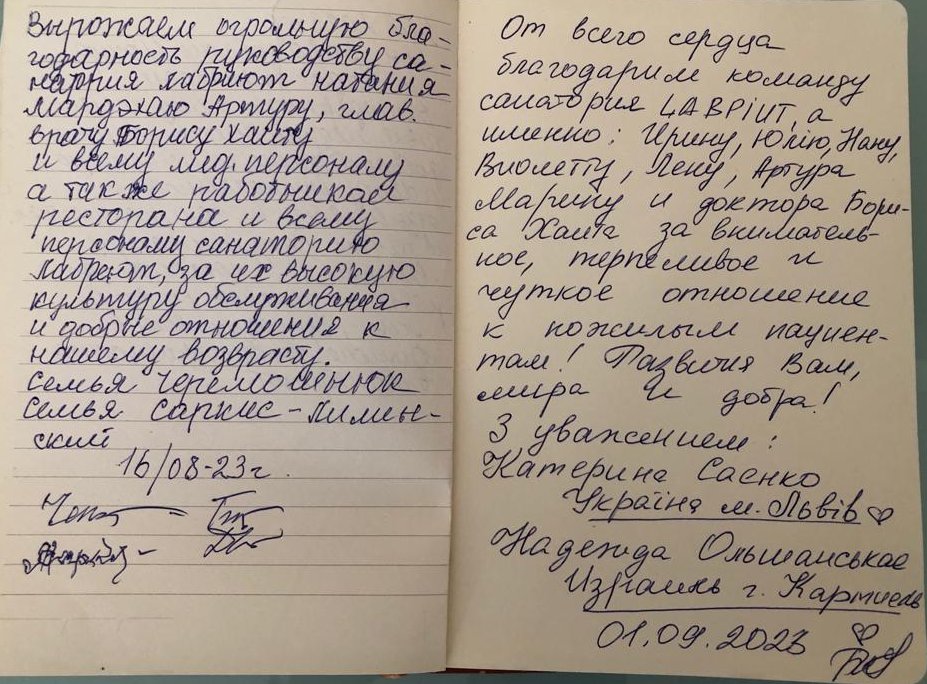 Вырожаем огромную бла-
годарность руководству са-
натрия лабриют натания
Мардэхаю Артуру, глав.
врачу Борису хаиту
и всему мед. персоналу
а также работникам
ресторана и всему
персоналу санаторию
лабреют, за их высокую
культуру обслуживания
и добрые отношения к
нашему возврасту.
семья Черемошенюк
семья саркис-лимын-
ский
16/08-23г.
От всего сердца
благодарим команду
санатория LABPiUT, а
именно: Ирину, Юлію, Нану,
Виолетту, Лену, Артура
Марину и доктора Бори-
са Хаита за вниматель-
ное, терпеливое и
чуткое отношение
к пожилым пациен-
там! Развития Вам,
мира и добра!
З уважением:
Катерина Саєнко
Україна м. Львів
Надежда Ольшанськае
Израиль г. Кармиель
01.09.2023